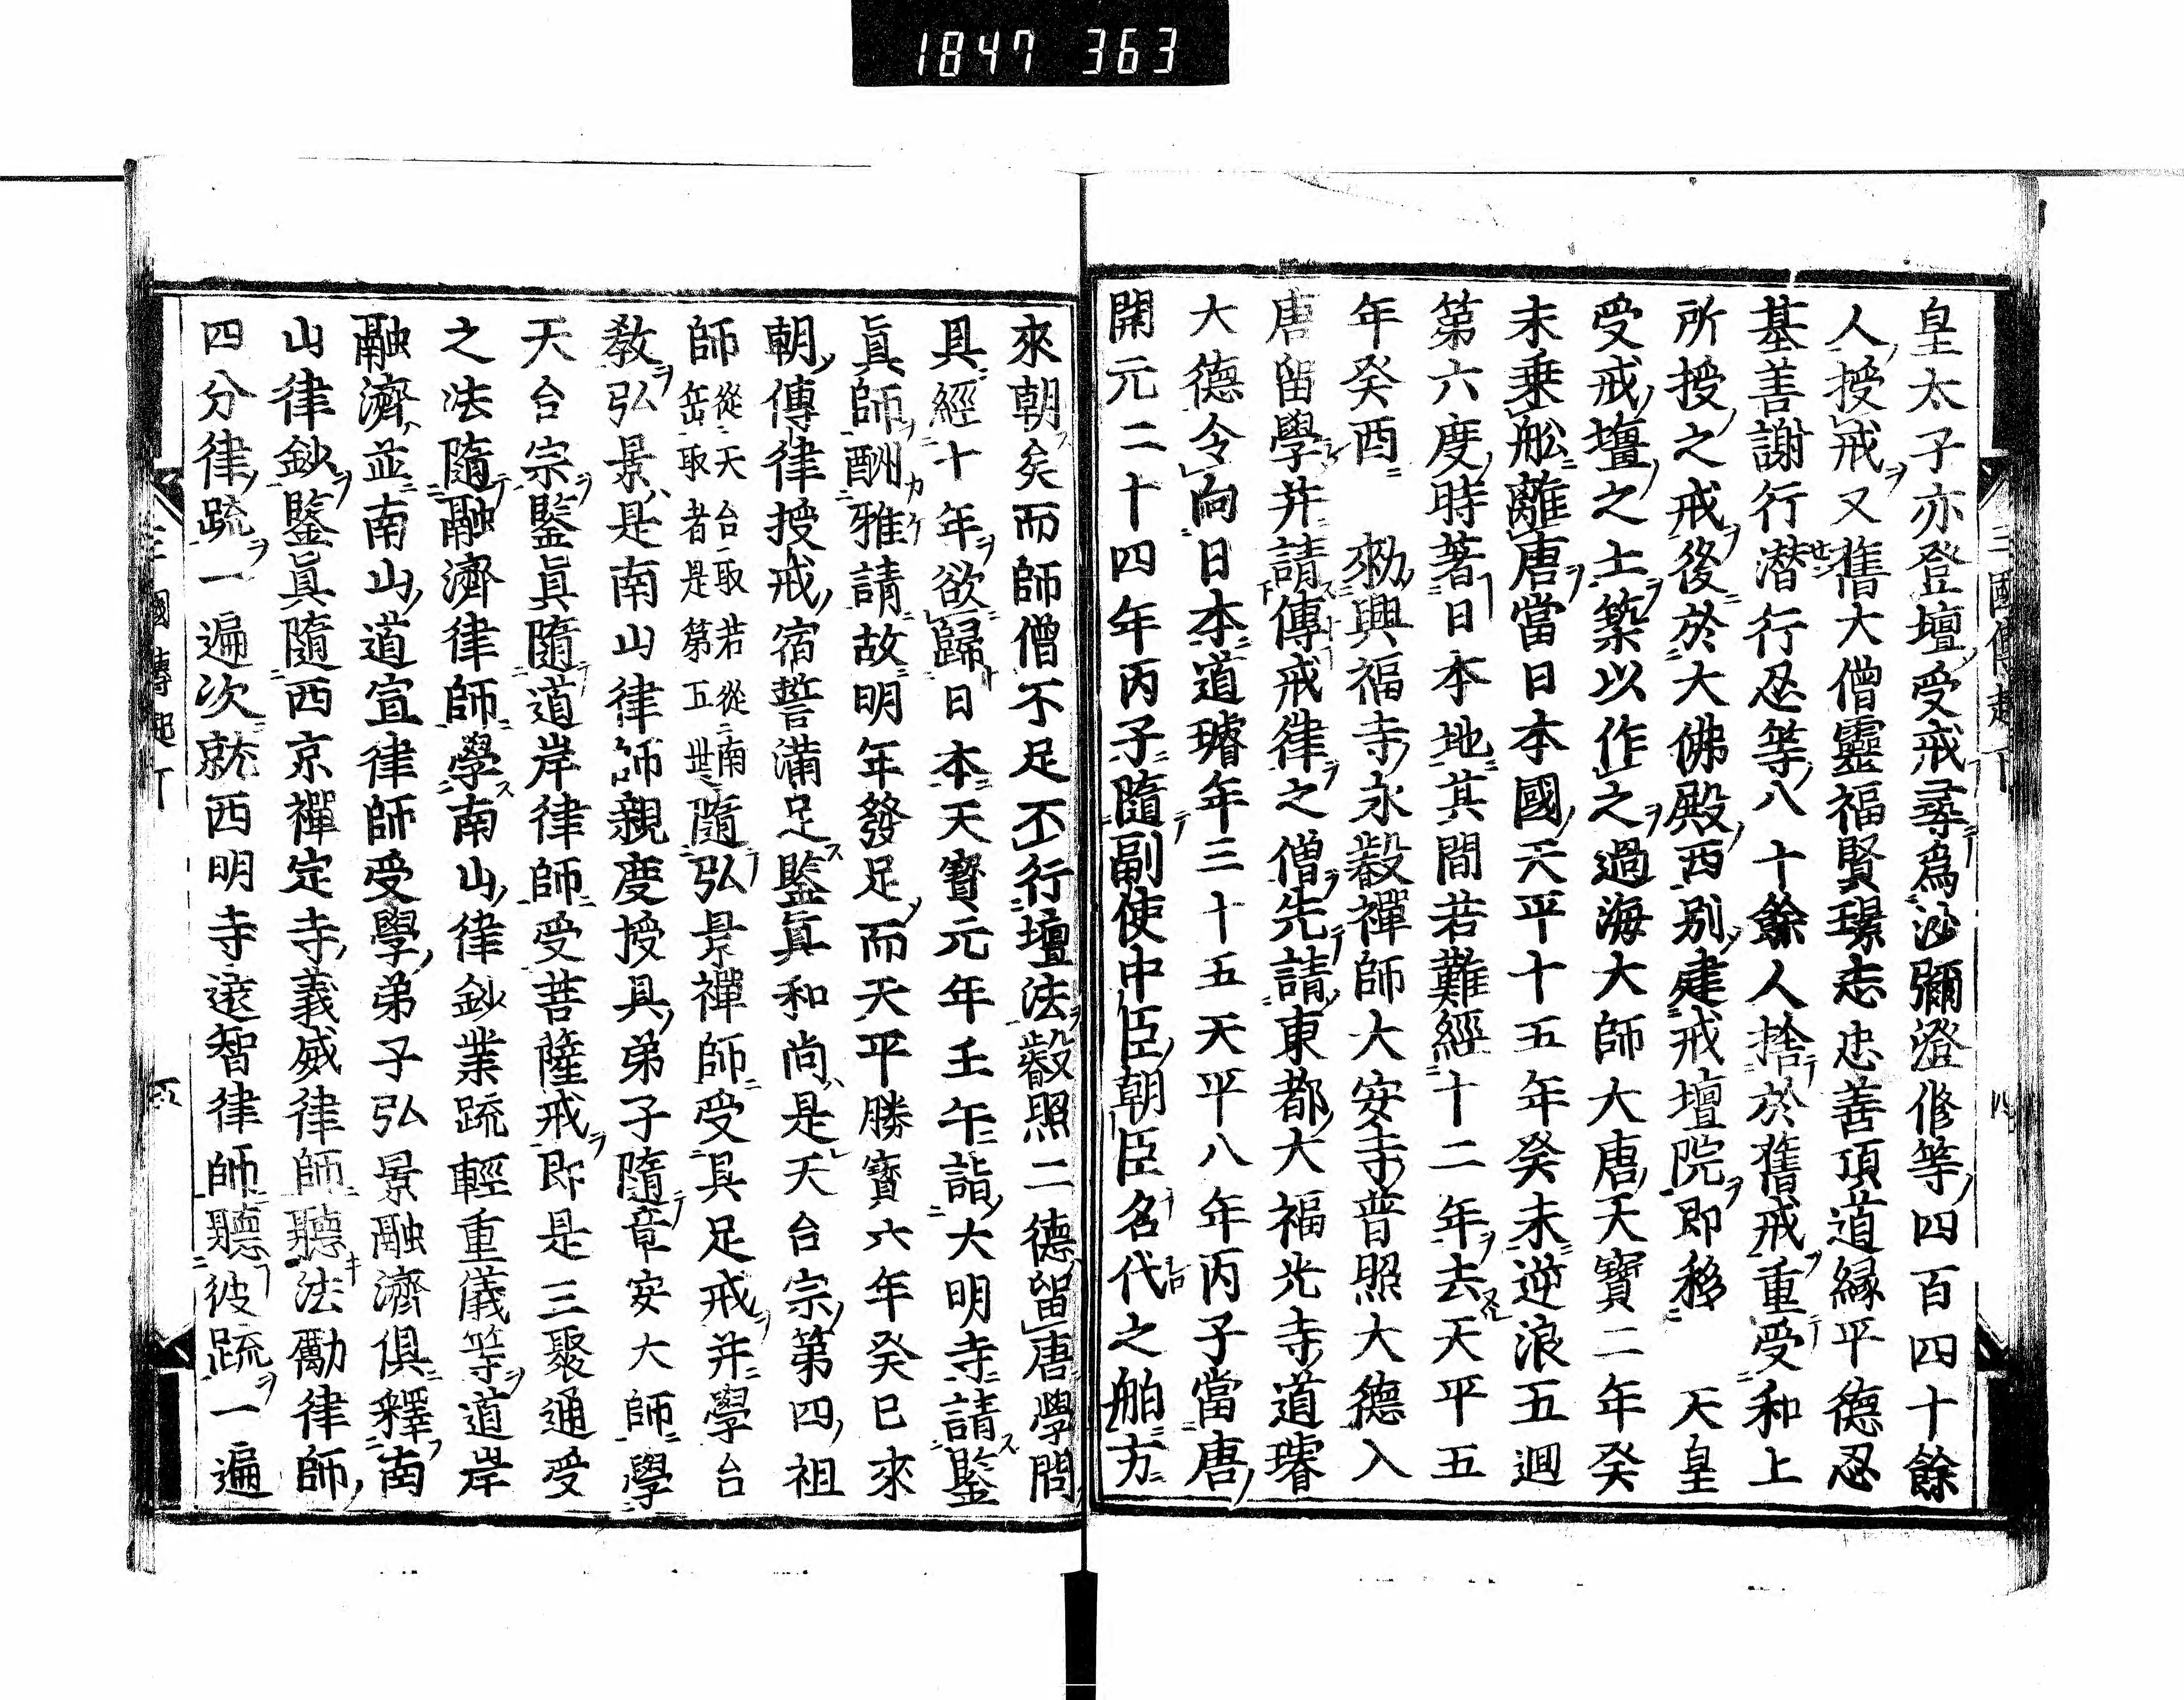 1847 363
皇太子亦登壇受戒尋爲沙彌澄修等四百四十餘
人授戒又舊大僧靈福賢璟志忠善頂道縁平德忍
基善謝行潜行忍等八十餘人捨於舊戒重受和上
所授之戒後於大佛殿西別建戒壇院即移 天皇
受戒壇之土築以作之過海大師大唐天寶二年癸
未乗舩離唐當日本國天平十五年癸未逆浪五廻
第六度時著日本地其間若難經十二年去天平五
年癸酉 勑興福寺永叡禪師大安寺普照大德入
唐留學并請傳戒律之僧先請東都大福光寺道璿
大德令向日本道璿年三十五天平八年丙子當唐
開元二十四年丙子隨副使中臣朝臣名代之舶方
來朝矣而師僧不足不行壇法叡照二德留唐學問
具經十年欲歸日本天寶元年壬午詣大明寺請鑒
眞師酬雅請故明年發足而天平勝寶六年癸巳來
朝傳律授戒宿誓滿足鑒眞和尚是天台宗第四祖
師從天台取若從南岳取者是第五世隨弘景禪師受具足戒并學台
教弘景是南山律師親度授具弟子隨章安大師學
天台宗鑒眞隨道岸律師受菩薩戒即是三聚通受
之法隨融濟律師學南山律鈔業疏輕重儀等道岸
融濟並南山道宣律師受學弟子弘景融濟俱釋南
山律鈔鑒眞隨西京禪定寺義威律師聽法勵律師
四分律疏一遍次就西明寺遠智律師聽彼疏一遍